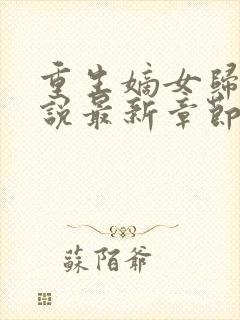 重生嫡女歸
說最新章節
蘇陌爺